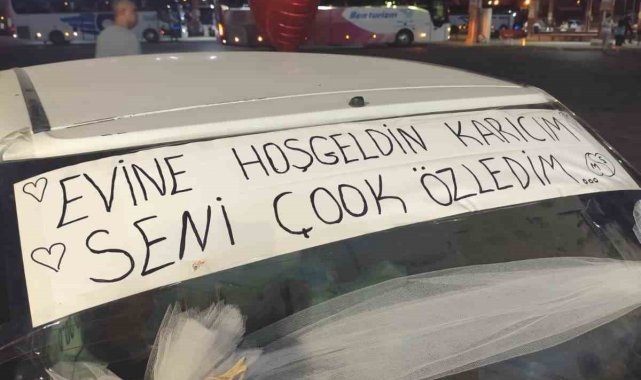 Ben turizm
EVİNE HOŞGELDİN KARICIM
SENİ ÇOOK ÖZLEDİM...